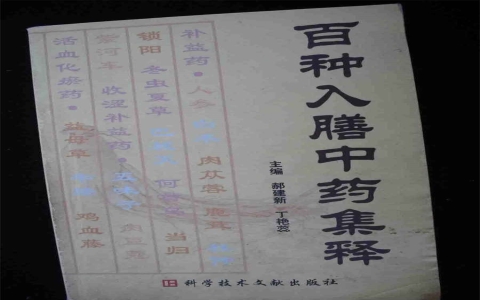 百种入膳中药集释
主编 郝建新 丁艳蕊
补益药·人参
肉苁蓉 鹿茸
锁阳 冬虫夏草
何首乌 当归
紫河车 收涩补益药·五味子
活血化瘀药·
益母草
鸡血藤
科学技术文献出版社